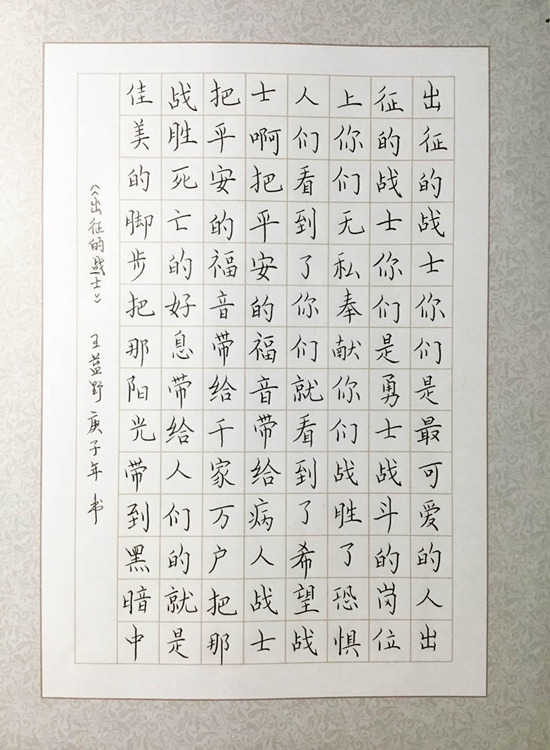 出征的战士你们是最可爱的人出
征的战士你们是勇士战斗的岗位
上你们无私奉献你们战胜了恐惧
人们看到了你们就看到了希望战
士啊把平安的福音带给病人战士
把平安的福音带给千家万户把那
战胜死亡的好息带给人们的就是
佳美的脚步把那阳光带到黑暗中
《出征的战士》 王益野 庚子年 书